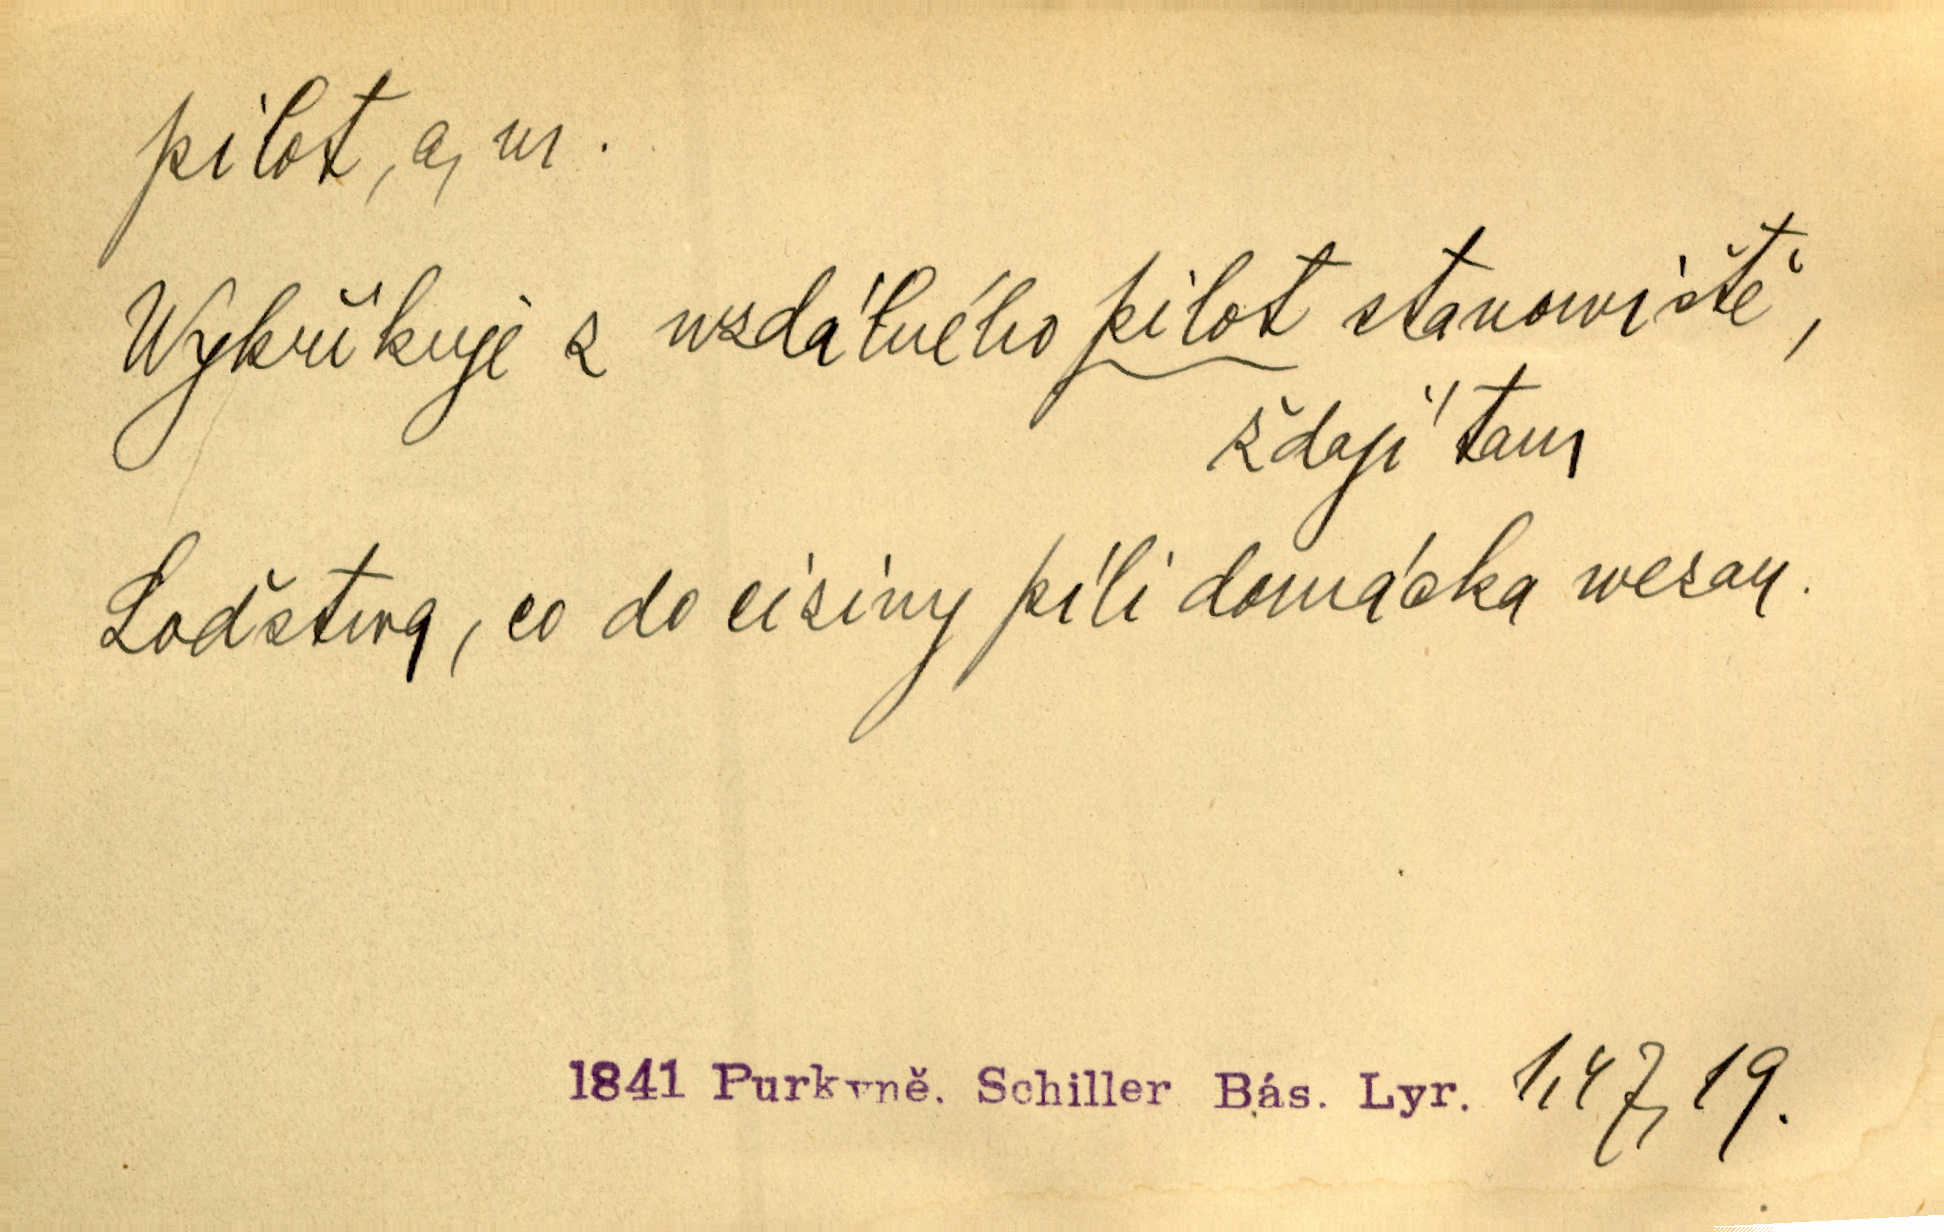 pilot, a, m.
Wykřikuje z wzdálného pilot stanowiště,
ždají tam
Lodstwa, co do ciziny pílí domácka wezou.
1841 Purkyně. Schiller Bás. Lyr. 1,47,19.